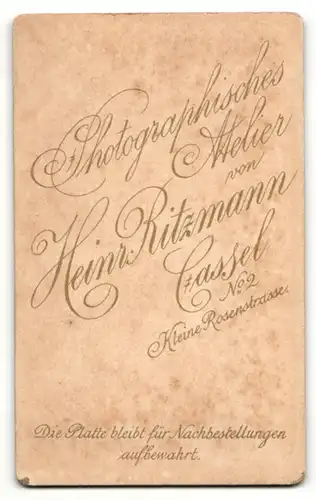 Photographisches
Atelier
von
Heinr. Ritzmann
Cassel
No. 2
Kleine Rosenstrasse.
Die Platte bleibt für Nachbestellungen
aufbewahrt.